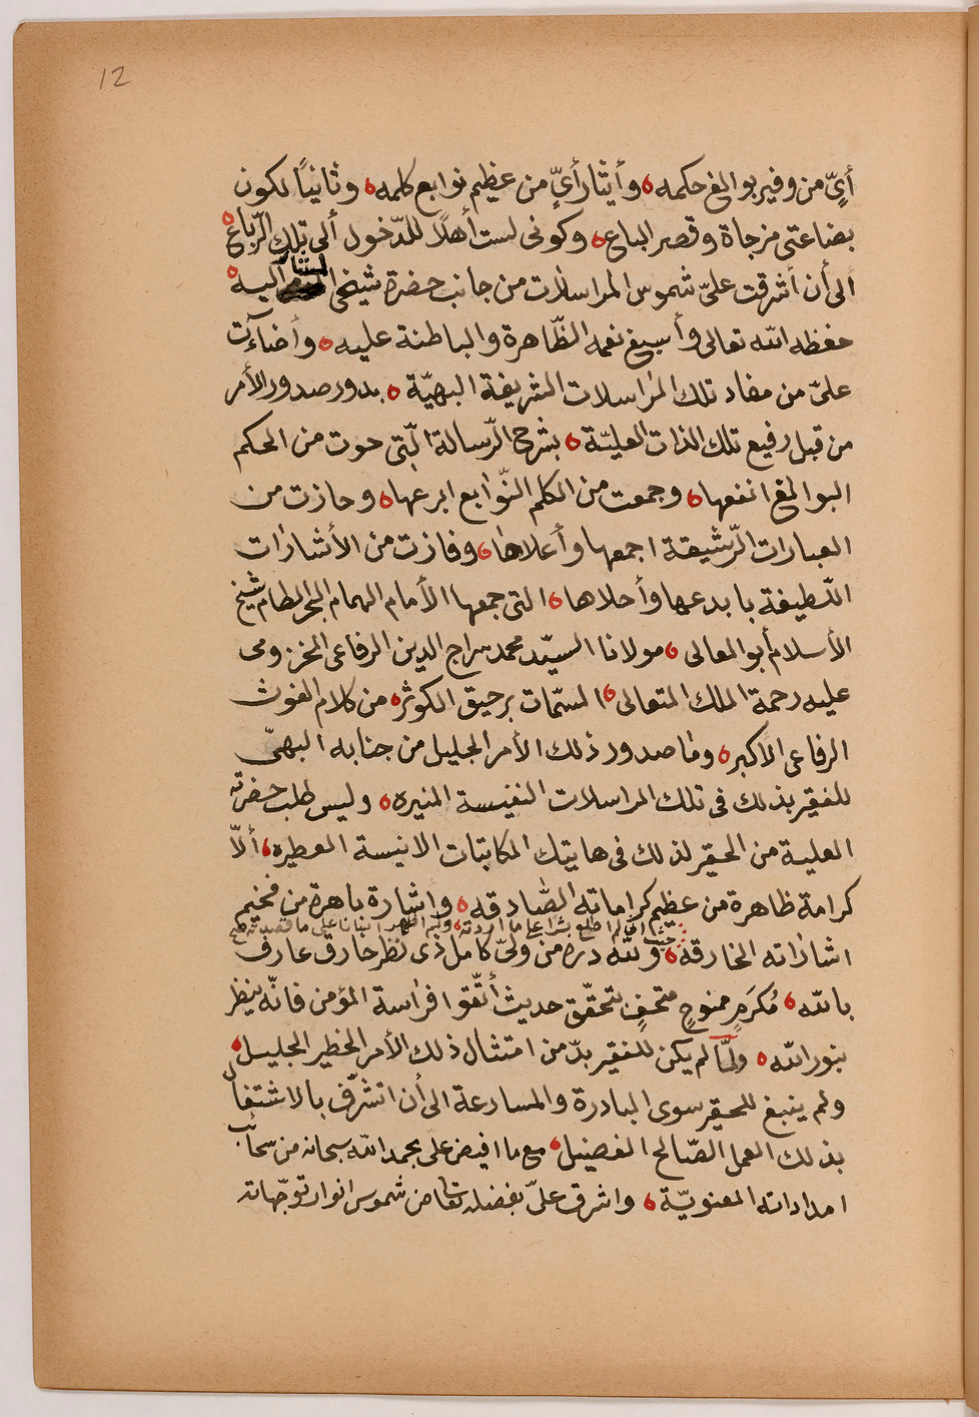 12
أيٍّ من وفير بوالغ حكمه ٥ وأيثار أيٍّ من عظيم نوابع كلمه ٥ وثانيًا لكون
بضاعتى مزجاة وقصر الباع ٥ وكونى لست أهلًا للدّخول ألى تلك الرّباع ٥
الى أن أشرقت علىّ شموس المراسلات من جانب حضرة شيخى المشار اليه ٥
حفظه الله تعالى وأسبغ نعمه الظّاهرة والباطنة عليه ٥ وأضاءت
علىّ من مفاد تلك المراسلات الشريفة البهيّة ٥ بدور صدور الأمر
من قبل رفيع تلك الذات العليّة ٥ بشرح الرّسالة الّتى حوت من الحكم
البوالغ انفعها ٥ وجمعت من الكلم النّوابع ابرعها ٥ وحازت من
العبارات الرّشيقة اجمعها وأعلاها ٥ وفازت من الأشارات
اللّطيفة بابدعها وأحلاها ٥ التى جمعها الأمام الهمام البحر الطام شيخ
الأسلام أبو المعالى ٥ مولانا السيّد محمد سراج الدين الرفاعى المخزومى
عليه رحمة الملك المتعالى ٥ المسّمات برحيق الكوثر ٥ من كلام الغوث
الرفاعى الاكبر ٥ وما صدور ذلك الأمر الجليل من جنابه البهىّ
للفقير بذلك فى تلك المراسلات النفيسة المنيره ٥ وليس طلب حضرته
العلية من الحقير لذلك فى هاتيك المكاتبات الانيسة العطيره ٥ ألاّ
كرامة ظاهرة من عظيم كراماته الصّادقه ٥ واشارة باهرة من فخيم
حيث انى لم اطلع بشرا على ما اردته ٥ ولم اظهر انسانا على ما قصدته
اشاراته الخارقة ٥ ولله دره من ولىّ كامل ذى نظر خارق عارف
بالله ٥ مُكرَمٍ ممنوحٍ متحفٍ بتحقّق حديث أتّقوا فراسة المؤمن فانّه ينظر
بنور الله ٥ ولمّا لم يكن للفقير بدّ من امتثال ذلك الأمر الخطير الجليل ٥
ولم ينبغ للحقير سوى المبادرة والمسارعة الى أن اتشرّف بالاشتغال
بذلك العمل الصّالح الفضيل ٥ مع ما افيض على بحمد الله سبحانه من سحائب
امداداته المعنويّة ٥ واشرق علىّ بفضله تعا من شموس انوار توجّهاته